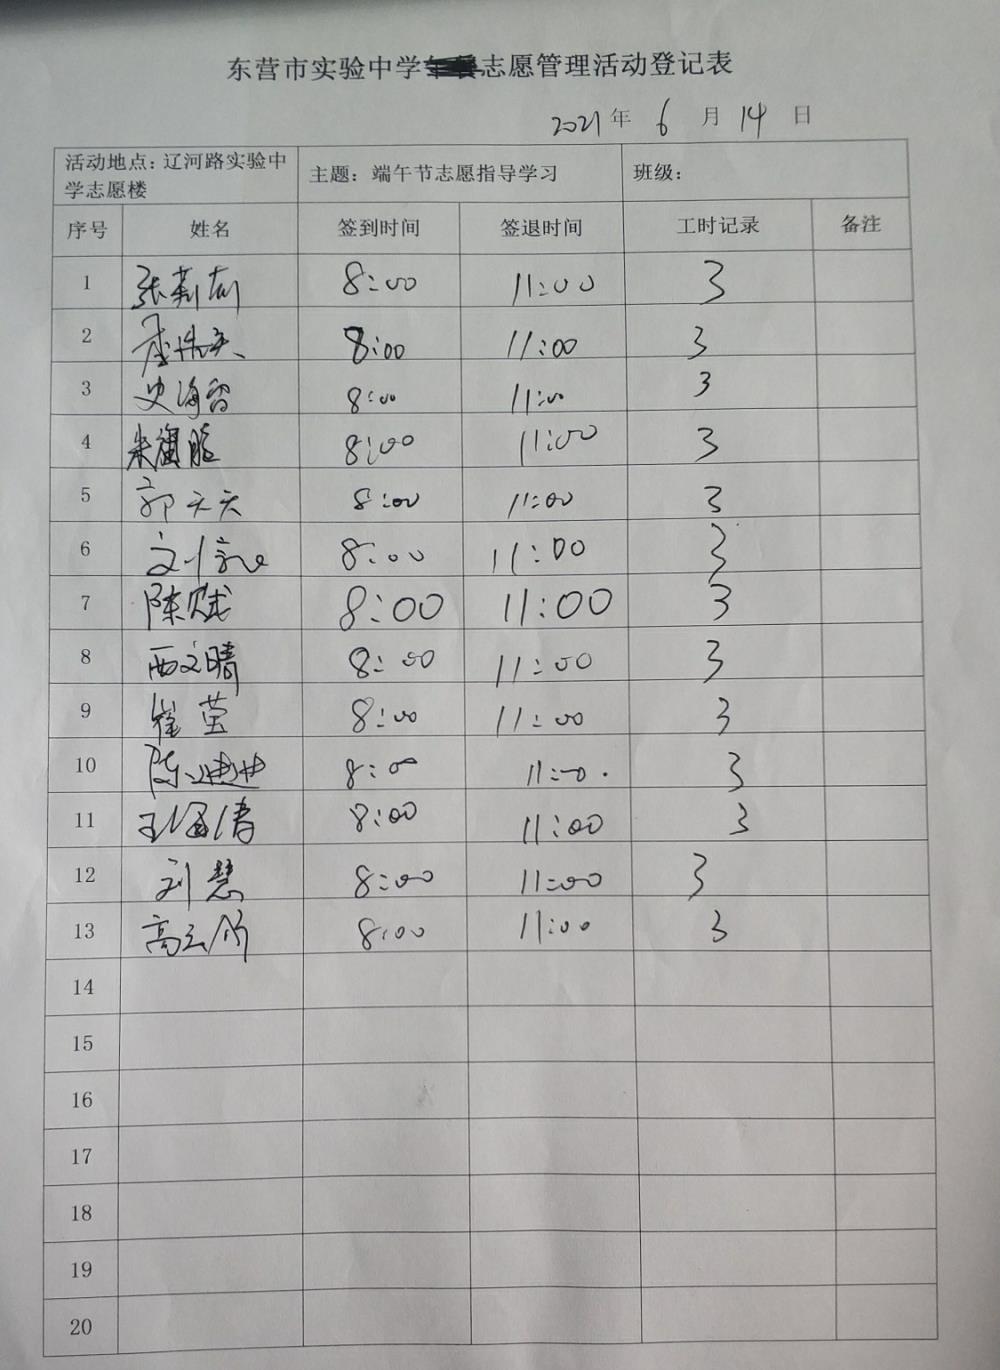 东营市实验中学志愿管理活动登记表
2021年 6 月 14 日
活动地点：辽河路实验中学志愿楼 主题：端午节志愿指导学习 班级：
序号 姓名 签到时间 签退时间 工时记录 备注
1 张 8:00 11:00 3
2 8:00 11:00 3
3 史海香 8:00 11:00 3
4 8:00 11:00 3
5 郭天天 8:00 11:00 3
6 刘 8:00 11:00 3
7 陈斌 8:00 11:00 3
8 西文晴 8:00 11:00 3
9 崔莹 8:00 11:00 3
10 陈迪迪 8:00 11:00 3
11 王 8:00 11:00 3
12 刘慧 8:00 11:00 3
13 高云 8:00 11:00 3
14
15
16
17
18
19
20